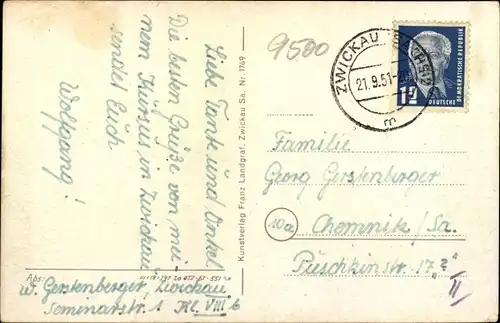 Liebe Tante und Onkel
Die besten Grüße von mei-
nem Kursus in Zwickau
sendet Euch
Wolfgang!
Abs:
W. Gerstenberger, Zwickau
Seminarstr. 1 Kl. VIII b
Kunstverlag Franz Landgraf, Zwickau Sa. Nr. 1769
9500
ZWICKAU
21.9.51
m
12
DEUTSCHE
DEMOKRATISCHE REPUBLIK
Familie
Georg Gerstenberger
10a
Chemnitz/Sa.
Puschkinstr. 17 "?"
II